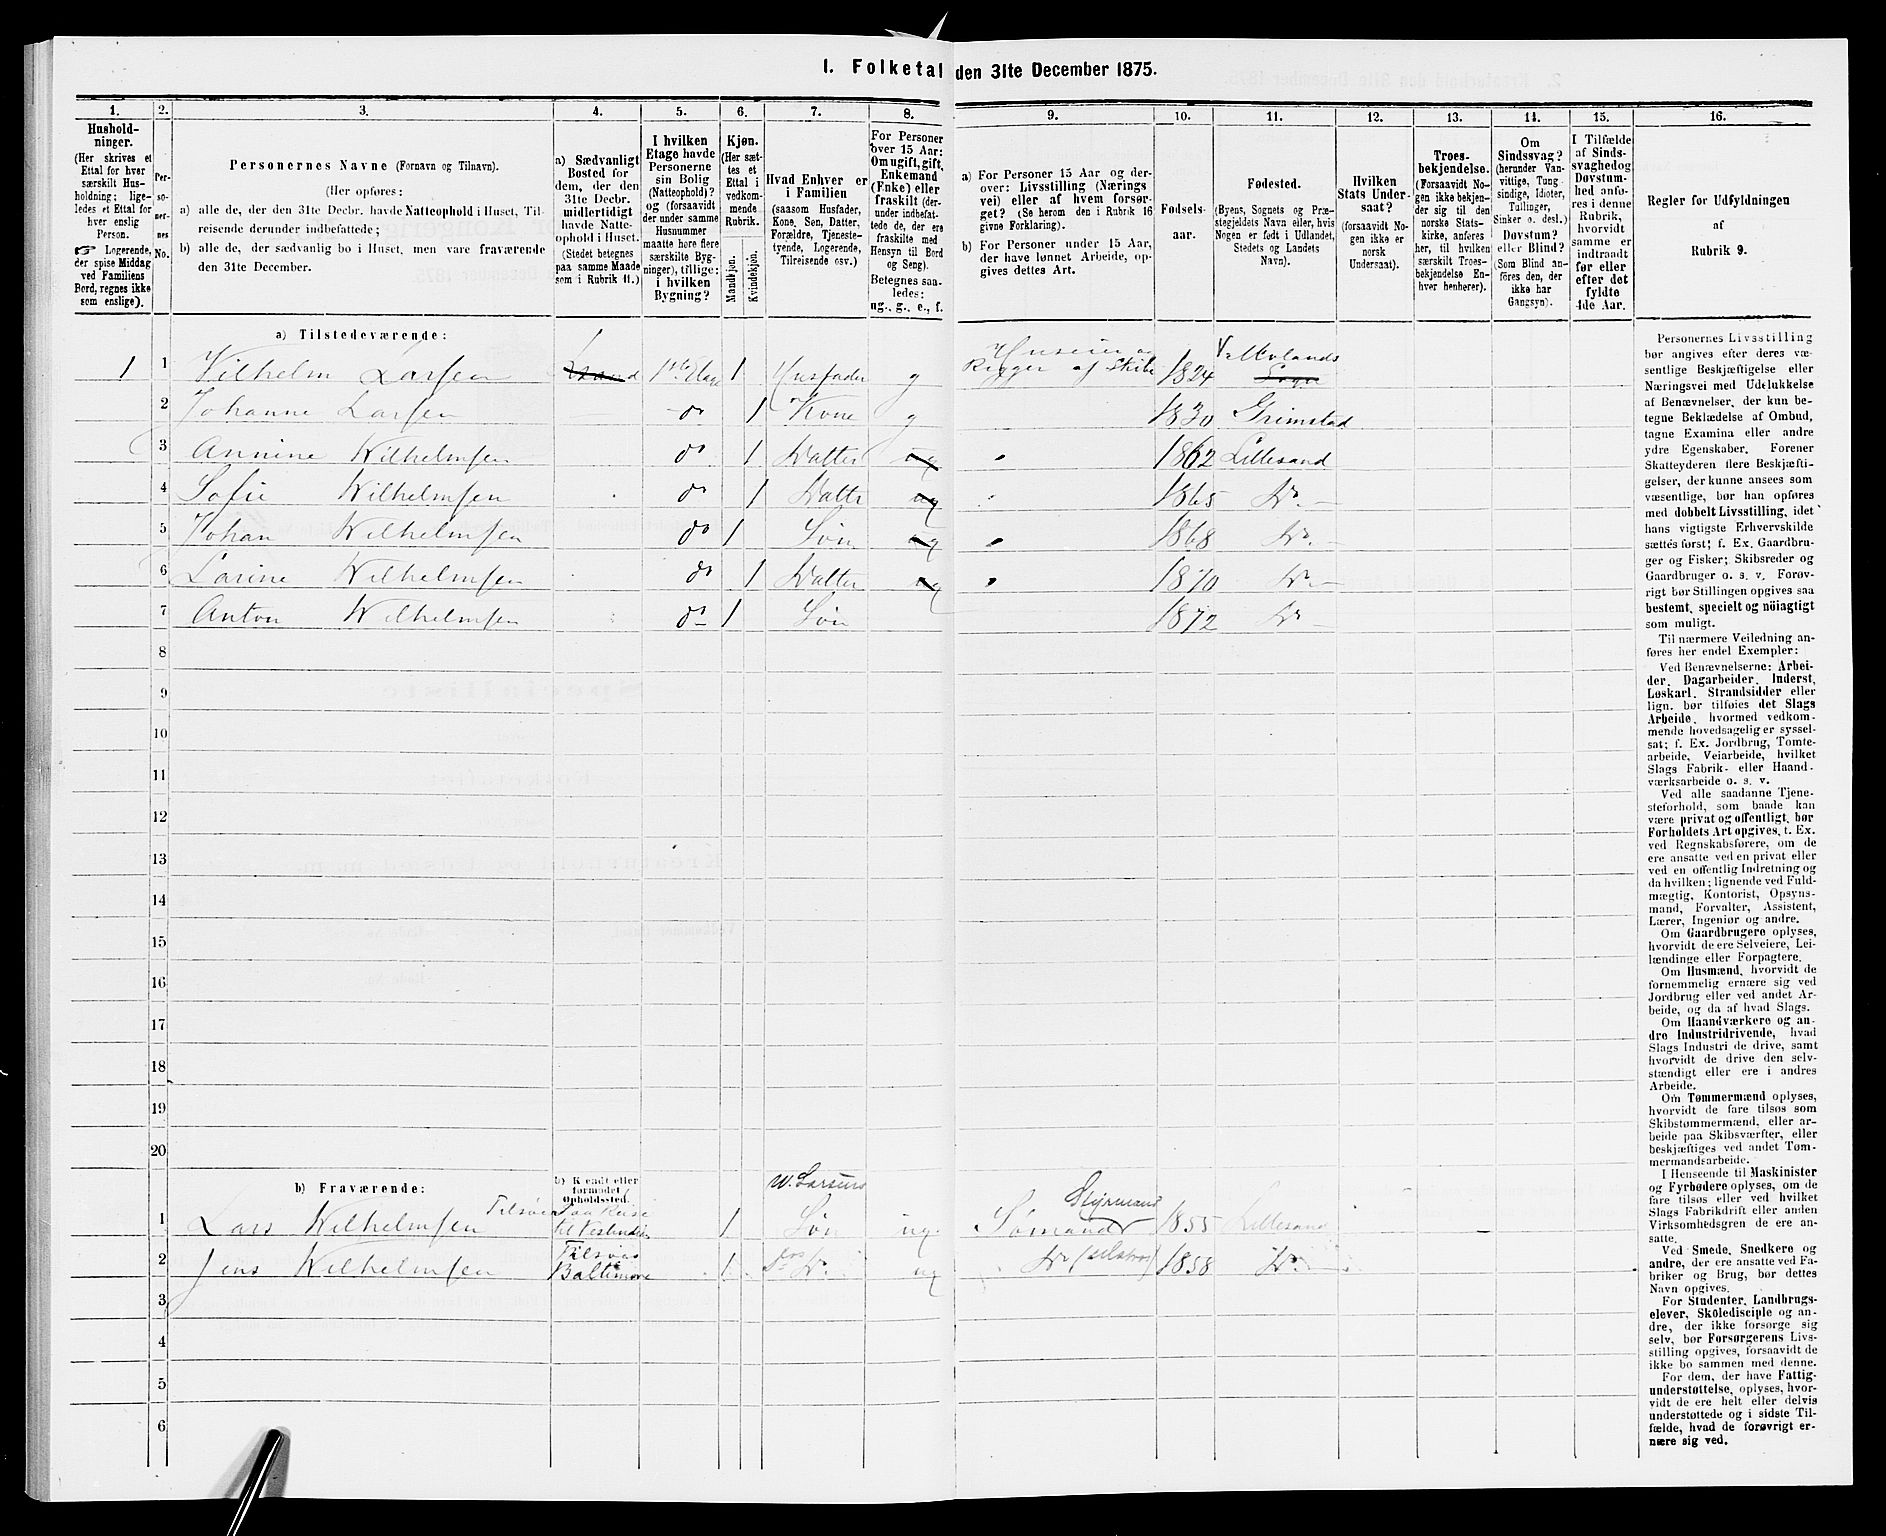 I. Folketal den 31te December 1875.
1.
2.
3.
4.
5.
6.
7.
8.
9.
10.
11.
12.
13.
14.
15.
16.
Hushold-
ninger.
(Her skrives et
Ettal for hver
særskilt Hus-
holdning; lige-
ledes et Ettal for
hver enslig
Person.
☞ Logerende,
der spise Middag
ved Familiens
Bord, regnes ikke
som enslige).
Per-
so-
ner-
nes
No.
Personernes Navne (Fornavn og Tilnavn).
(Her opføres:
a) alle de, der den 31te Decbr. havde Natteophold i Huset, Til-
reisende derunder indbefattede;
b) alle de, der sædvanlig bo i Huset, men vare fraværende
den 31te December.
a) Sædvanligt
Bosted for
dem, der den
31te Decbr.
midlertidigt
havde Natte-
ophold i Huset.
(Stedet betegnes
paa samme Maade
som i Rubrik 11.)
I hvilken
Etage havde
Personerne
sin Bolig
(Natteophold)?
og (forsaavidt
der under samme
Husnummer
maatte høre flere
særskilte Byg-
ninger), tillige:
i hvilken
Bygning?
Kjøn.
(Her sæt-
tes et
Ettal i
vedkom-
mende
Rubrik.
Mandkjøn.
Kvindekjøn.
Hvad Enhver er
i Familien
(saasom Husfader,
Kone, Søn, Datter,
Forældre, Tjeneste-
tyende, Logerende,
Tilreisende osv.)
For Personer
over 15 Aar:
Om ugift, gift,
Enkemand
(Enke) eller
fraskilt (der-
under indbefat-
tede de, der ere
fraskilte med
Hensyn til Bord
og Seng).
Betegnes saa-
ledes:
ug., g., e., f.
a) For Personer 15 Aar og der-
over: Livsstilling (Nærings
vei) eller af hvem forsør-
get? (Se herom den i Rubrik 16
givne Forklaring).
b) For Personer under 15 Aar,
der have lønnet Arbeide, op-
gives dettes Art.
Fødsels-
aar.
Fødested.
(Byens, Sognets og Præ-
stegjeldets Navn eller, hvis
Nogen er født i Udlandet,
Stedets og Landets
Navn).
Hvilken
Stats Under-
saat?
(forsaavidt No-
gen ikke er
norsk
Undersaat).
Troes-
bekjendelse.
(Forsaavidt No-
gen ikke bekjen-
der sig til den
norske Stats-
kirke, anføres
her, til hvilken
særskilt Troes-
bekjendelse En-
hver henhører).
Om
Sindssvag?
(herunder Van-
vittige, Tung
sindige, Idioter,
Tullinger,
Sinker o. desl.)
Døvstum?
eller Blind?
(Som Blind an-
føres den, der
ikke har
Gangsyn).
I Tilfælde
af Sinds-
svaghed og
Døvstum-
hed anfø-
res i denne
Rubrik,
hvorvidt
samme er
indtraadt
før eller
efter det
fyldte
4de Aar.
Regler for Udfyldningen
af
Rubrik 9.
a) Tilstedeværende:
1 1 Vilhelm Larsen 1ste Etage 1 Husfader g Huseier og Rigger af Skibe 1824 Sogn
2 Johanne Larsen do 1 Kone g 1830 Grimstad
3 Annine Wilhelmsen do 1 Datter ug 1862 Lillesand
4 Sofie Wilhelmsen do 1 Datter ug 1865 Do
5 Johan Wilhelmsen do 1 Søn ug 1868 Do
6 Larine Wilhelmsen do 1 Datter ug 1870 Do
7 Anton Wilhelmsen do 1 Søn 1872 Do
8
9
10
11
12
13
14
15
16
17
18
19
20
b) Fraværende:
b) Kjendt eller
formodet
Opholdssted.
W. Larsens
Styrmand
1 Lars Wilhelmsen Tilsøes paa Reise til Vestindien 1 Søn ug. Sømand 1855 Lillesand
2 Jens Wilhelmsen Tilsøes Baltimore 1 Do ug Do 1858 Do
3
4
5
6
Personernes Livsstilling
bør angives efter deres væ-
sentlige Beskjæftigelse eller
Næringsvei med Udelukkelse
af Benævnelser, der kun be-
tegne Beklædelse af Ombud,
tagne Examina eller andre
ydre Egenskaber. Forener
Skatteyderen flere Beskjæfti-
gelser, der kunne ansees som
væsentlige, bør han opføres
med dobbelt Livsstilling, idet
hans vigtigste Erhvervskilde
sættes først; f. Ex. Gaardbru-
ger og Fisker; Skibsreder og
Gaardbruger o. s. v. Forøv-
rigt bør Stillingen opgives saa
bestemt, specielt og nöiagtigt
som muligt.
Til nærmere Veiledning an-
føres her endel Exempler:
Ved Benævnelserne: Arbei-
der, Dagarbeider, Inderst,
Løskarl, Strandsidder eller
lign. bør tilføies det Slags
Arbeide, hvormed vedkom-
mende hovedsagelig er syssel-
sat; f. Ex. Jordbrug, Tomte-
arbeide, Veiarbeide, hvilket
Slags Fabrik- eller Haand-
værksarbeide o. s. v.
Ved alle saadanne Tjene-
steforhold, som baade kan
være privat og offentligt, bør
Forholdets Art opgives, t. Ex.
ved Regnskabsførere, om de
ere ansatte ved en privat eller
ved en offentlig Indretning og
da hvilken; lignende ved Fuld-
mægtig, Kontorist, Opsyns-
mand, Forvalter, Assistent,
Lærer, Ingeniør og andre.
Om Gaardbrugere oplyses,
hvorvidt de ere Selveiere, Lei-
lændinge eller Forpagtere.
Om Husmænd, hvorvidt de
fornemmelig ernære sig ved
Jordbrug eller ved andet Ar-
beide, og da af hvad Slags.
Om Haandværkere og an-
dre Industridrivende, hvad
Slags Industri de drive, samt
hvorvidt de drive den selv-
stændigt eller ere i andres
Arbeide.
Om Tømmermænd oplyses,
hvorvidt de fare tilsøs som
Skibstømmermænd, eller ar-
beide paa Skibsværfter, eller
beskjæftiges ved andet Tøm-
mermandsarbeide.
I Henseende til Maskinister
og Fyrbødere oplyses, om de
fare tilsøs eller ved hvilket
Slags Fabrikdrift eller anden
Virksomhedsgren de ere an-
satte.
Ved Smede, Snedkere og
andre, der ere ansatte ved Fa-
briker og Brug, bør dettes
Navn opgives.
For Studenter, Landbrugs-
elever, Skoledisciple og an-
dre, der ikke forsørge sig
selv, bør Forsørgerens Livs-
stilling opgives, forsaavidt de
ikke bo sammen med denne.
For dem, der have Fattig-
understøttelse, oplyses, hvor-
vidt de ere helt eller delvis
understøttede og i sidste Til-
fælde, hvad de forøvrigt er-
nære sig ved.